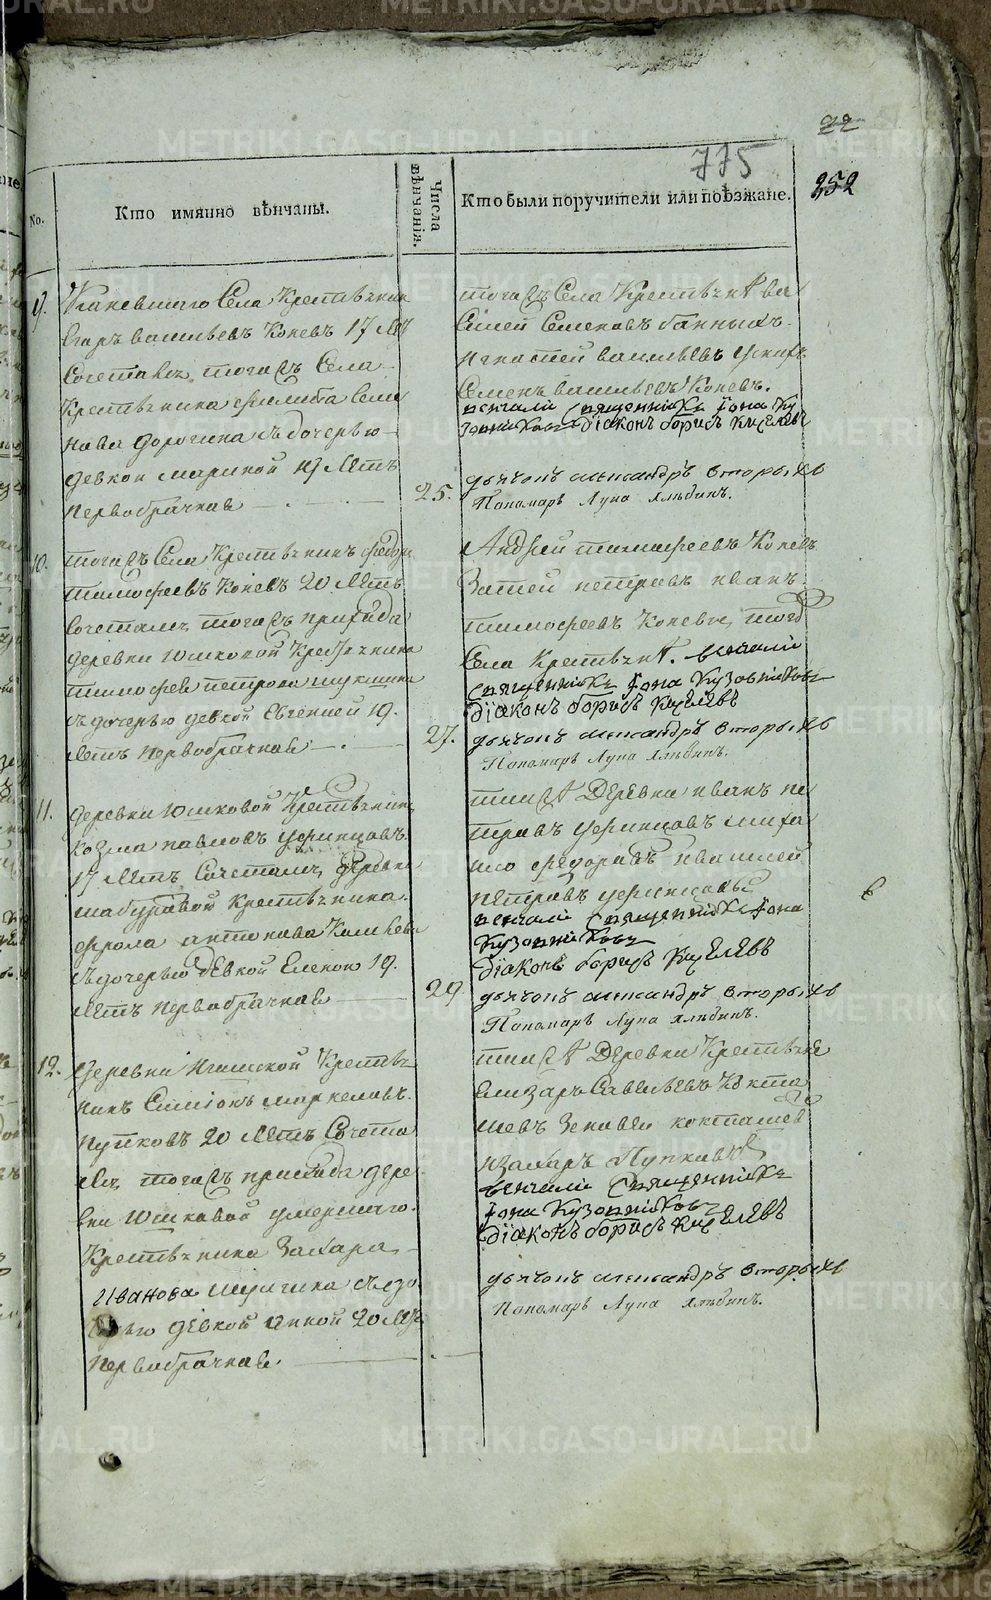 22
775
252
No.
Кто имянно вѣнчаны.
Числа вѣнчанія.
Кто были поручители или поѣзжане.
9.
Села Крестьянин
Егоръ васильевъ Коневъ 17 лѣтъ
Сочетался тогожъ Села
Крестьянина филипа Семе
нова дорогина съ дочерью
девкой мариной 19 лѣтъ
первобрачнае
25.
тогожъ Села Крестьяня ва
Силей Семеновъ банныхъ
игнатей васильевъ
Семенъ васильевъ Коневъ.
венчали священникъ Iона Ку
зовниковъ Дiаконъ борисъ Киселевъ
дьячокъ александръ вторыхъ
Пономарь Лупа Яльбинъ.
10.
тогожъ Села Крестьянинъ федоръ
тимофеевъ Коневъ 20 лѣтъ
Сочетался тогожъ прихода
деревни юшковой Крестьянина
тимофея петрова шукшина
съ дочерью девкой Евгенией 19.
лѣтъ первобрачнае
27.
Андрей тимофеевъ Коневъ
петровъ иванъ
тимофеевъ Коневы тогожъ
Села Крестьяня. венчали
священникъ Iона Кузовниковъ
Дiаконъ борисъ Киселевъ
дьячокъ александръ вторыхъ
Пономарь Лупа Яльбинъ.
11.
деревни юшковой Крестьянинъ
козма павловъ уфинцовъ
17 лѣтъ Сочетался деревни
шабуровой крестьянина
фрола антонова
съ дочерью девкой Еленою 19.
лѣтъ первобрачнае
29
тояжъ Деревни иванъ пе
тровъ уфинцовъ миха
ило федоровъ
петровъ уфинцовы
венчали священникъ Iона
Кузовниковъ
Дiаконъ борисъ Киселевъ
дьячокъ александръ вторыхъ
Пономарь Лупа Яльбинъ.
12.
деревни Крестья
нинъ Симiонъ маркеловъ
пупковъ 20 лѣтъ Сочета
лся тогожъ прихода дере
вни юшковой умершаго
Крестьянина Захара
Иванова съ до
черью девкой анной 20 лѣтъ
первобрачнае.
тояжъ Деревни Крестьяне
Елизаръ Савельевъ Кокта
шевъ Зеновей кокташев
изахаръ Пупковъ
венчали Священникъ
Iона Кузовниковъ
Дiаконъ борисъ Киселевъ
дьячокъ александръ вторыхъ
Пономарь Лупа Яльбинъ.
METRIKI.GASO-URAL.RU